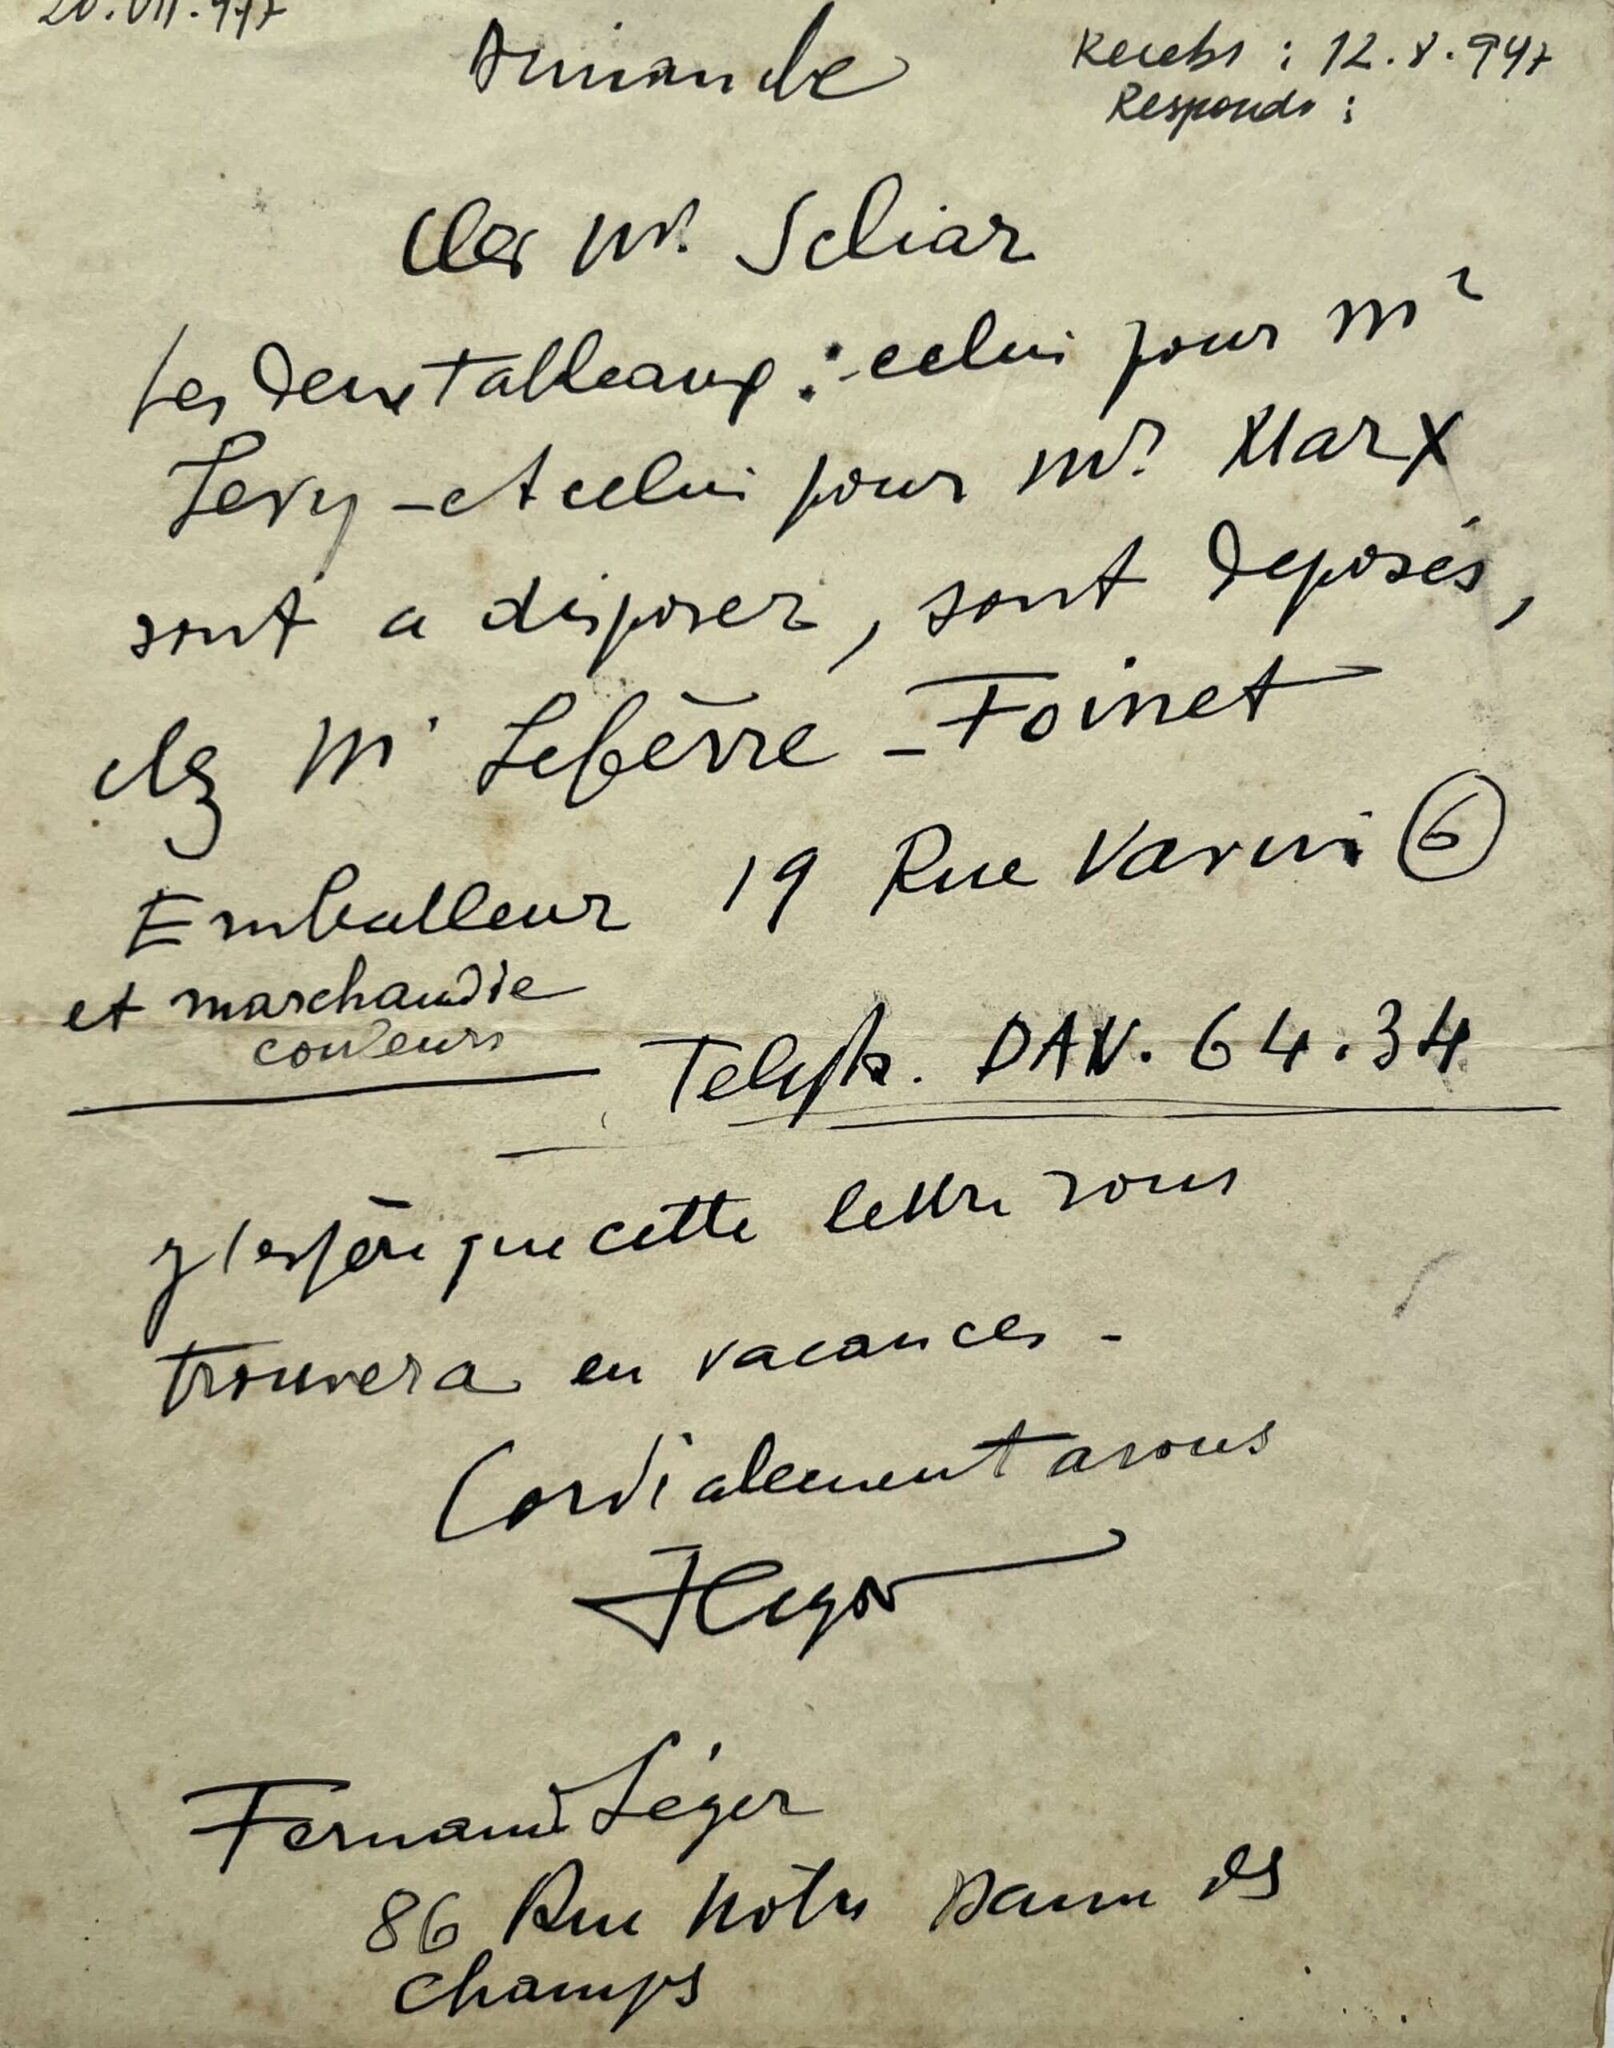 20.VII.947
Dimanche
Recebi : 12.8.947
Respondi :
Cher Mr. Scliar
Les deux tableaux : celui pour Mr
Levy - et celui pour Mr. Marx
sont a disposer, sont deposés,
chez Mr Lefèvre - Foinet
Emballeur 19 Rue Vavin 6
et marchand de
couleurs
Teleph. DAN. 64.34
J'espère que cette lettre vous
trouvera en vacances -
Cordialement a vous
FLeger
Fernand Léger
86 Rue Notre Dame des
champs